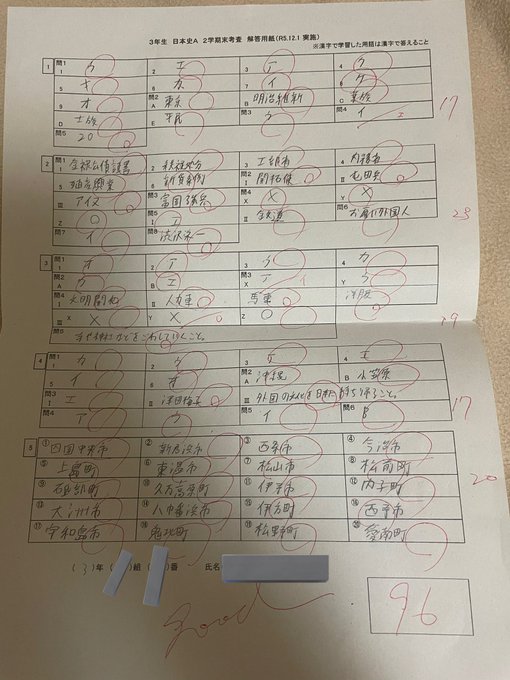 3年生 日本史A 2学期末考査 解答用紙(R5.12.1 実施)
※漢字で学習した用語は漢字で答えること
1 問1 1 ウ 2 エ 3 ア 4 ク
5 キ 6 カ 7 イ 8 ケ
9 オ 問2 A 東京 B 明治維新 C 華族
D 士族 E 平民 問3 ウ 問4 イ
問5 20
17
2 問1 1 金禄公債証書 2 秩禄処分 3 工部省 4 内務省
5 殖産興業 6 新貨条例 問2 I 開拓使 II 屯田兵
III アイヌ 問3 富国強兵 問4 X × Y ×
Z ○ 問5 I エ II 鉄道 問6 お雇い外国人
問7 イ 問8 渋沢栄一
23
3 問1 1 オ 2 ア 3 ウ 4 カ
問2 A ウ B エ 問3 X ア Y ウ
問4 I 文明開化 II 人力車 馬車 洋服
III X × Y × Z ○
問5
19
4 問1 1 カ 2 ウ 3 ケ 4 エ
5 イ 6 オ 問2 A 沖縄 B 小笠原
問3 I エ II 津田梅子 III 外国の文化を日本に持ち帰ること。
問4 ア ウ 問5 イ 問6
17
5 ① 四国中央市 ② 新居浜市 ③ 西条市 ④ 今治市
⑤ 上島町 ⑥ 東温市 ⑦ 松山市 ⑧ 松前町
⑨ 砥部町 ⑩ 久万高原町 ⑪ 伊予市 ⑫ 内子町
⑬ 大洲市 ⑭ 八幡浜市 ⑮ 伊方町 ⑯ 西予市
⑰ 宇和島市 ⑱ 鬼北町 ⑲ 松野町 ⑳ 愛南町
20
(3)年 ( )組 ( )番 氏名
good
96